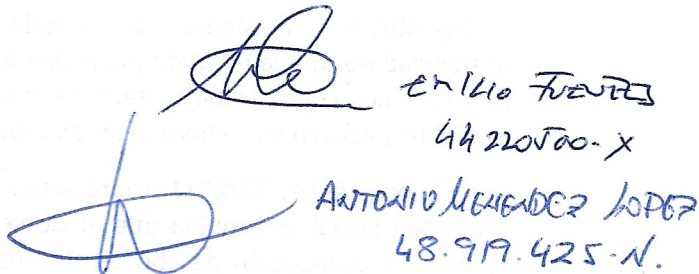 EMILIO FUENTES
44220500-X
ANTONIO MENENDEZ LOPEZ
48.919.425-N.